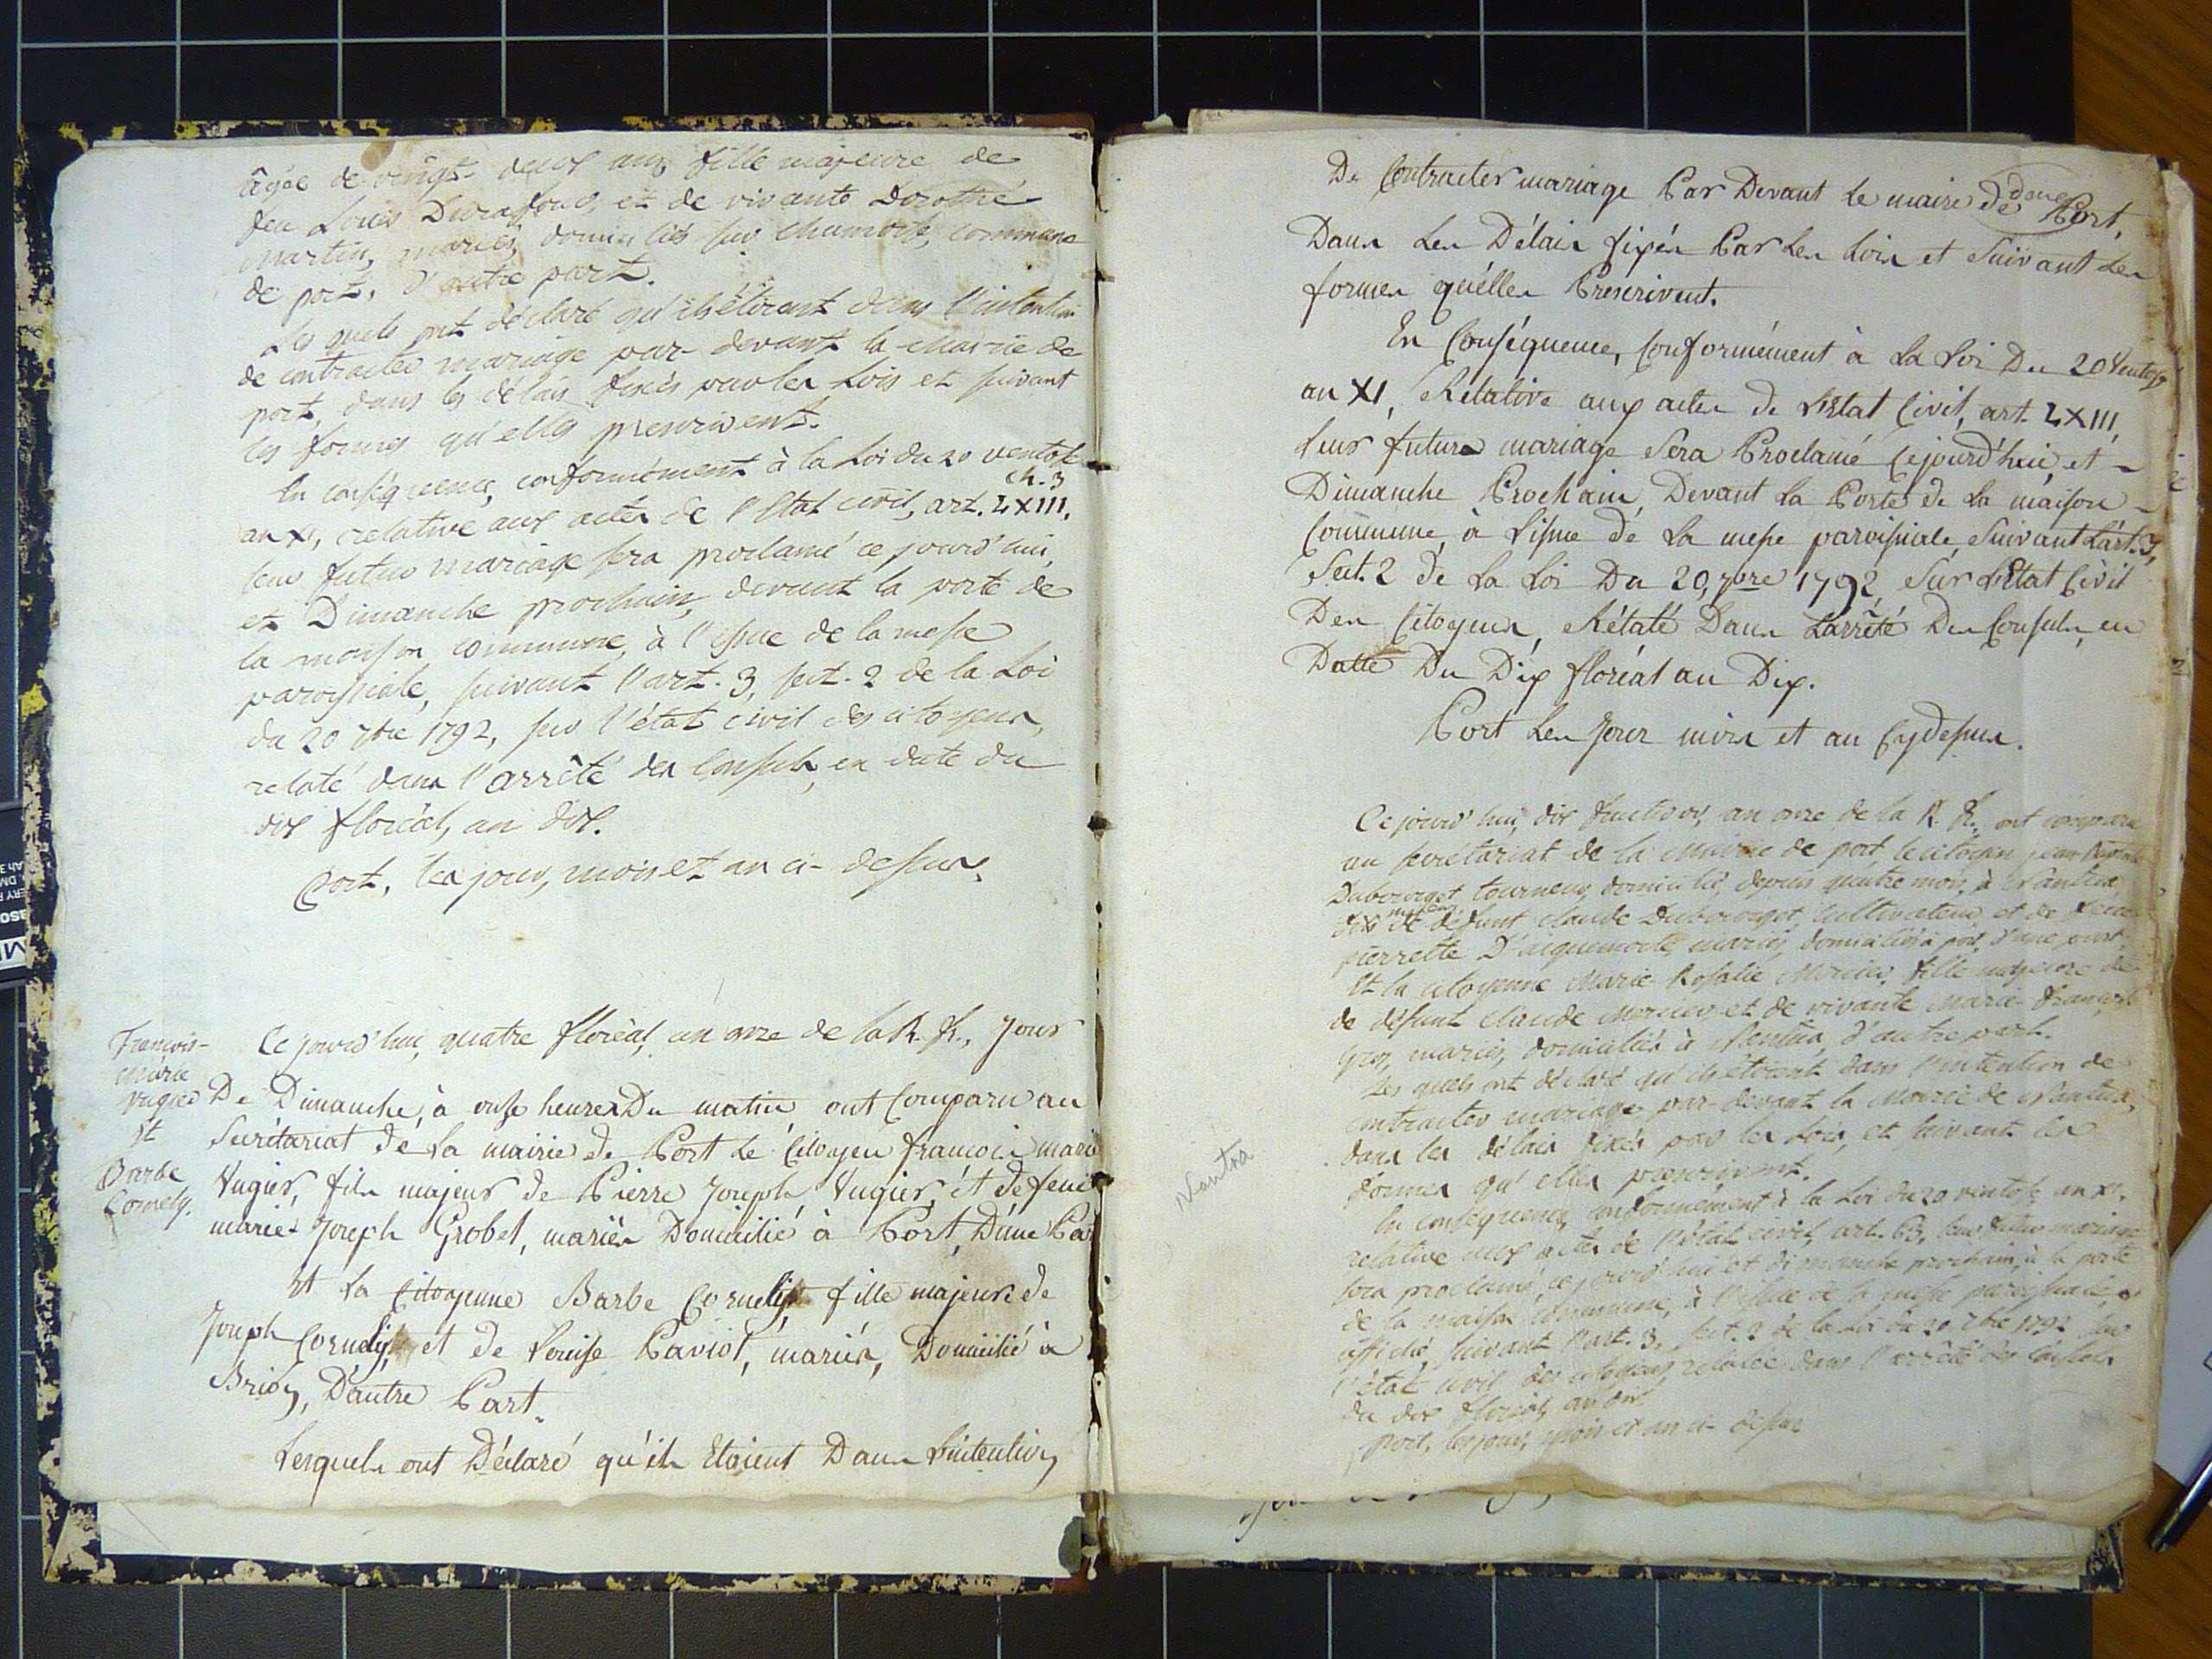 âgée de vingt-deux ans, fille majeure de
feu Louis Durafour, et de vivante Dorothé
Martin, mariés, domiciliés sur Chamoise, commune
de port, d'autre part.
Les quels ont déclaré qu'ils étoient dans l'intention
de contracter mariage par-devant la mairie de
port, dans les délais fixés par les Lois et suivant
les formes qu'elles prescrivent.
En conséquence, conformément à la Loi du 20 ventose
an XI, relative aux actes de l'Etat civil, ch. 3 art. LXIII,
leur futur mariage sera proclamé ce jourd'hui,
et Dimanche prochain, devant la porte de
la maison commune, à l'issue de la messe
paroissiale, suivant l'art. 3, sect. 2 de la Loi
du 20 7bre 1792, sur l'état civil des citoyens,
relaté dans l'arrêté des Consuls, en date du
dix floréal, an dix.
Port, les jour, mois et an ci-dessus.
François-
marie
vugier
et
Barbe
Cornely.
Ce jourd'hui, quatre floréal, an onze de la R. F., Jour
De Dimanche, à onze heures Du matin ont Comparu au
Sécrétariat de La mairie de Port le Citoyen françois marie
Vugier, fils majeur de Pierre Joseph Vugier, et de feue
marie Joseph Grobet, mariés Domicilié à Port, D'une Part
Et La Citoyenne Barbe Cornely, fille majeure de
Joseph Cornely, et de Louise Paviot, mariés, Domicilié à
Brion, D'autre Part.
Lesquels ont Déclaré qu'ils Etoient Dans L'intention
De Contracter mariage Par Devant Le maire de Port,
Dans Les Délais fixés Par Les Loix et Suivant Les
formes qu'elles Prescrivent.
En Conséquence, Conformément à La Loi Du 20 Ventose
an XI, Rélative aux actes de L'Etat Civil, art. LXIII,
Leur future mariage Sera Proclamé Cejourd'hui, et
Dimanche Prochain, Devant La Porte de La maison
Commune, à L'issue de La messe paroissiale, Suivant L'art. 3,
Sect. 2 de La Loi Du 20, 7bre 1792, Sur L'Etat Civil
Des Citoyens, Rélaté Dans L'arrêté Des Consuls, en
Datte Du Dix floréal an Dix.
Port Les Jour mois et an Cy dessus.
Ce jourd'hui, dix fructidor, an onze de la R. F., ont comparu
au secrétariat de la Mairie de port, le citoyen jean Baptiste
Dubourget, tourneur, domicilié, depuis quatre mois, à Nantua,
fils majeur de défunt Claude Dubourget, cultivateur, et de feue
pierrette D'aiguemorte, mariés, domiciliés à port, d'une part.
Et la citoyenne Marie-Rosalie Mercier, fille majeure de
de défunt Claude Mercier, et de vivante Marie-Françoise
Gros, mariés, domiciliés à Nantua, d'autre part.
Les quels ont déclaré qu'ils étoient dans l'intention de
contracter mariage par-devant la Mairie de Nantua,
dans les délais fixés par les Lois, et suivant les
formes qu'elles prescrivent.
Nantua
En conséquence, conformément à la Loi du 20 ventose an XI,
relative aux actes de l'état civil, art. 63, leur futur mariage
sera proclamé, ce jourd'hui et dimanche prochain, à la porte
de la maison commune, à l'issue de la messe paroissiale, et
affiché, suivant l'art. 3, sect. 2 de la Loi du 20 7bre 1792 sur
l'état civil des citoyens, relatée dans l'arrêté des Consuls
du dix floréal, an dix
port, les jour, mois et an ci-dessus